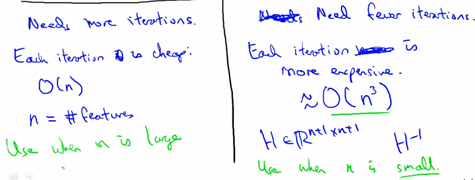 Needs more iterations.
Each iteration is cheap:
O(n)
n = #features
Use when n is large
Need fewer iterations.
Each iteration is
more expensive.
≈ O(n³)
H ∈ ℝⁿ⁺¹ˣⁿ⁺¹ H⁻¹
Use when n is small.